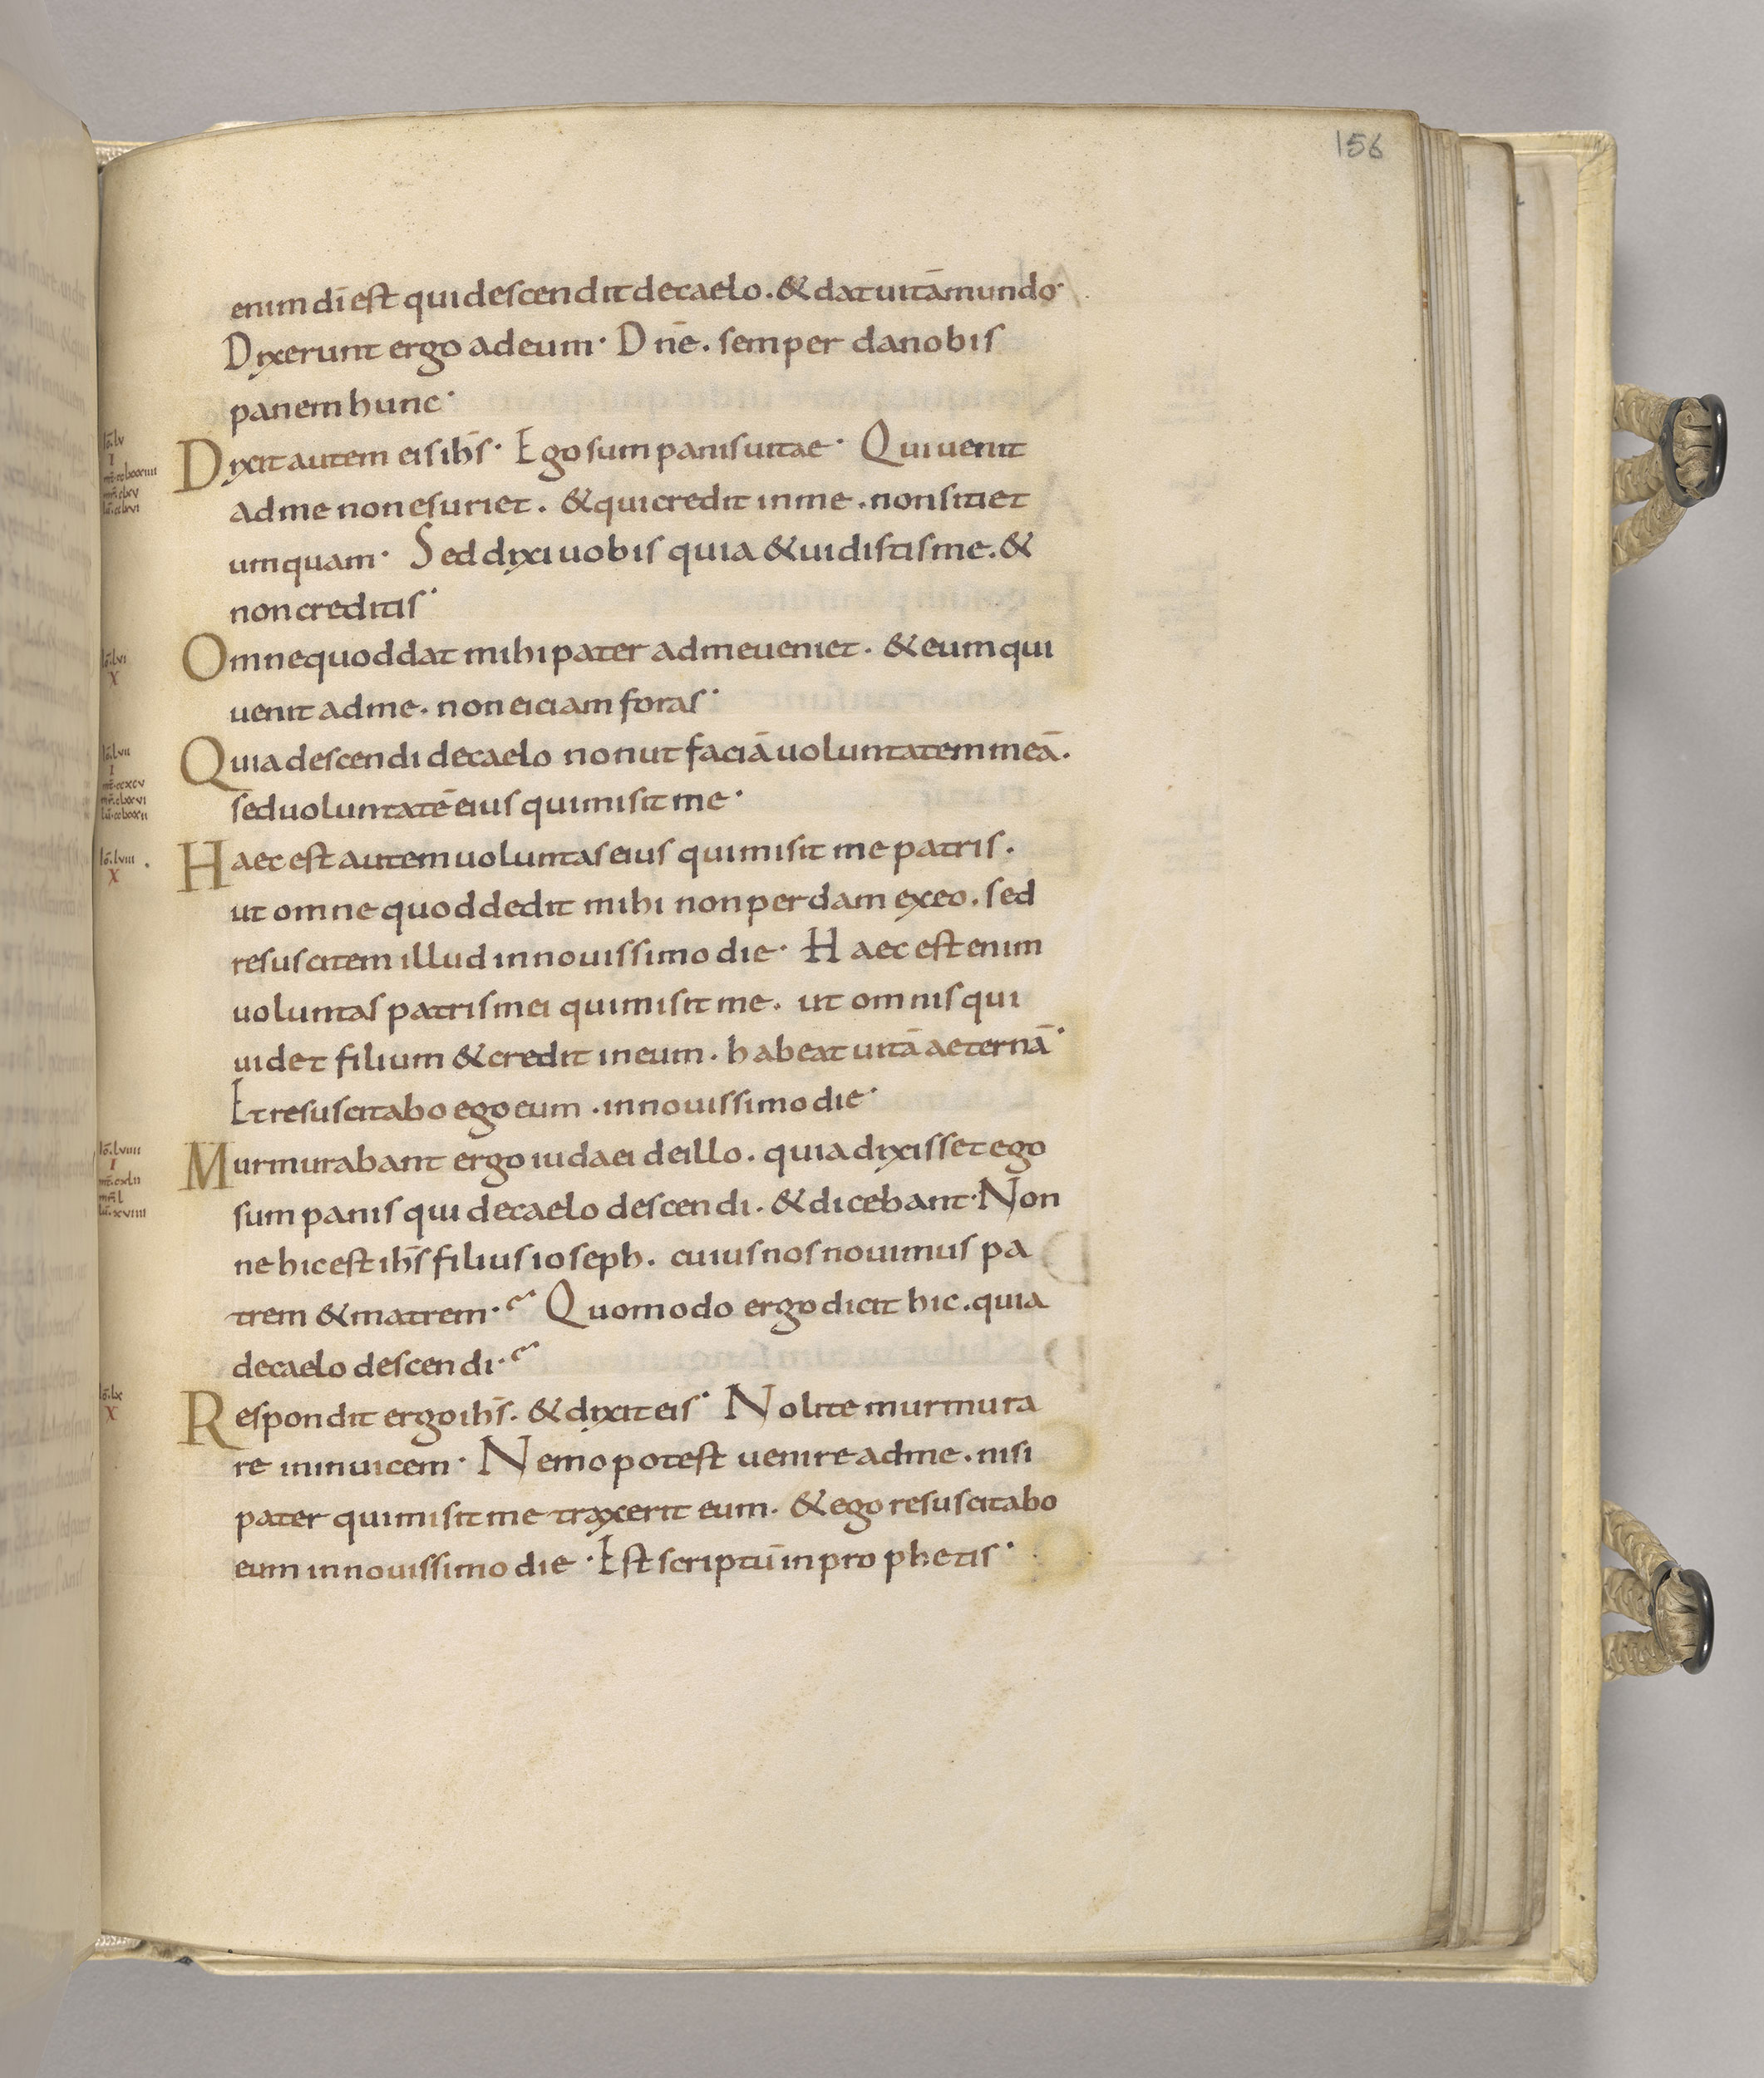 156
enim dī est qui descendit de caelo. & dat uitā mundo·
Dixerunt ergo ad eum· Dnē. semper da nobis
panem hunc·
Dixit autem eis ihs̄· Ego sum panis uitae· Qui uenit
ad me non esuriet. & qui credit in me. non sitiet
umquam· Sed dixi uobis quia & uidistis me. &
non creditis·
Omne quod dat mihi pater ad me ueniet. & eum qui
uenit ad me. non eiciam foras·
Quia descendi de caelo non ut faciā uoluntatem meā.
sed uoluntatē eius qui misit me·
Haec est autem uoluntas eius qui misit me patris.
ut omne quod dedit mihi non perdam ex eo. sed
resuscitem illud in nouissimo die· Haec est enim
uoluntas patris mei qui misit me. ut omnis qui
uidet filium & credit in eum. habeat uitā aeternā·
Et resuscitabo ego eum. in nouissimo die·
Murmurabant ergo iudaei de illo. quia dixisset ego
sum panis qui de caelo descendi. & dicebant· Non
ne hic est ihs̄ filius ioseph. cuius nos nouimus pa
trem & matrem·? Quomodo ergo dicit hic. quia
de caelo descendi·?
Respondit ergo ihs̄. & dixit eis· Nolite murmura
re in inuicem· Nemo potest uenire ad me. nisi
pater qui misit me traxerit eum. & ego resuscitabo
eum in nouissimo die· Est scriptū in prophetis·
iō.lv
I
iō.lvi
X
iō.lvii
I
iō.lviii
X
iō.lviiii
I
mt̄.cxlii
mr̄.l
lū.xviiii
iō.lx
X